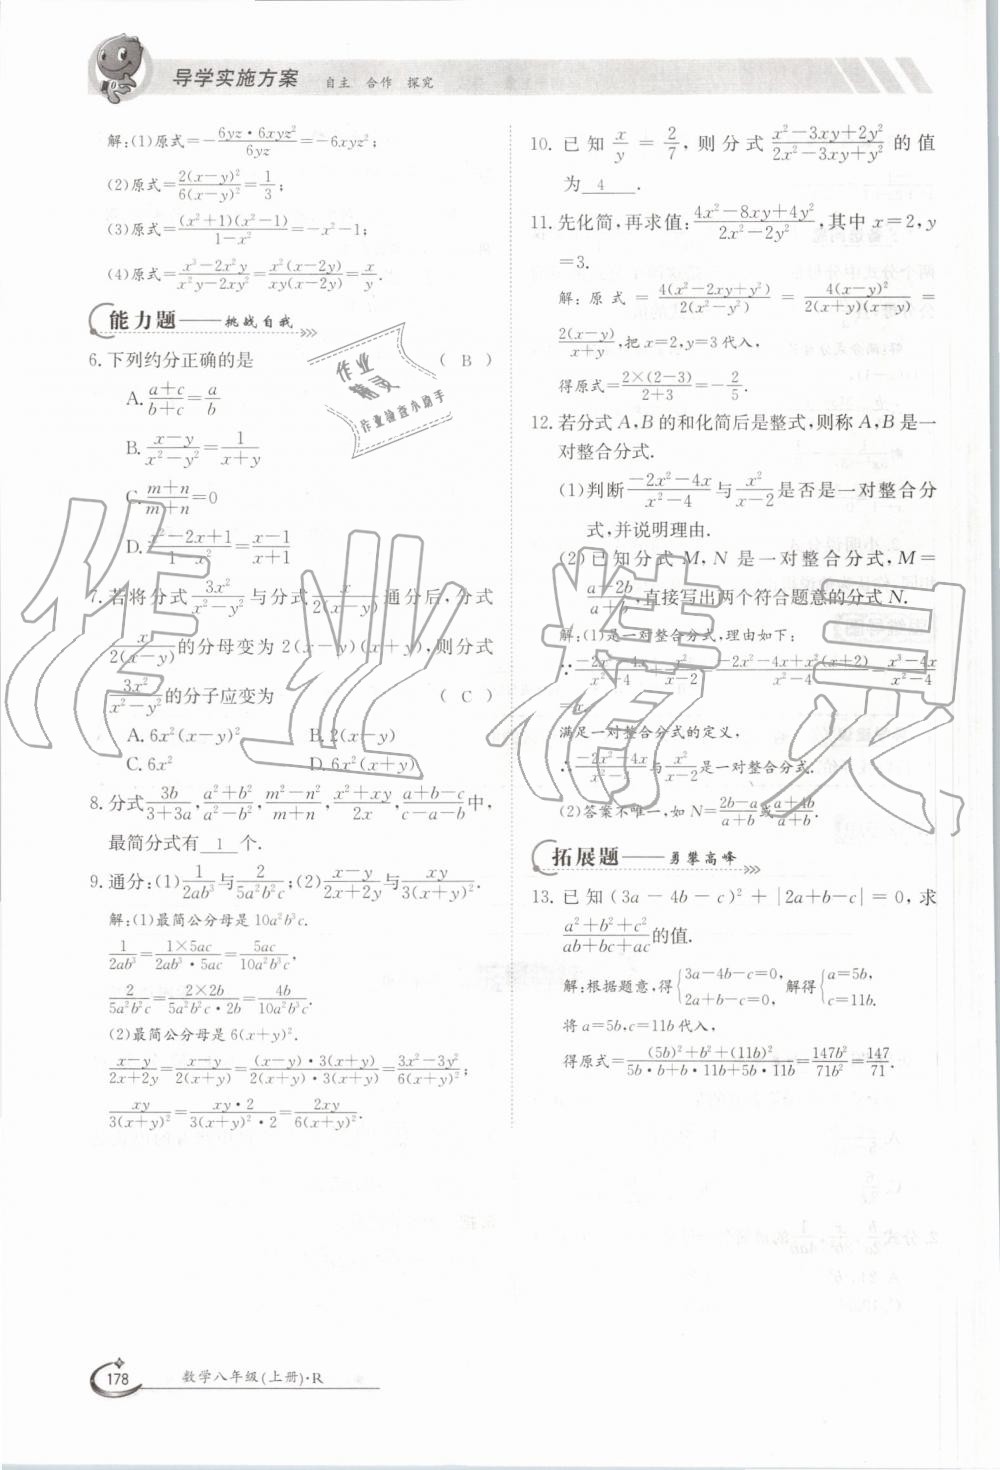 导学实施方案 自主 合作 探究
解:(1)原式=-\frac{6yz·6xyz²}{6yz}=-6xyz²;
(2)原式=\frac{2(x-y)²}{6(x-y)²}=\frac{1}{3};
(3)原式=\frac{(x²+1)(x²-1)}{1-x²}=-x²-1;
(4)原式=\frac{x³-2x²y}{x²y-2xy²}=\frac{x²(x-2y)}{xy(x-2y)}=\frac{x}{y}.
能力题——挑战自我
6.下列约分正确的是 ( B )
A.\frac{a+c}{b+c}=\frac{a}{b}
B.\frac{x-y}{x²-y²}=\frac{1}{x+y}
C.\frac{m+n}{m+n}=0
D.\frac{x²-2x+1}{1-x²}=\frac{x-1}{x+1}
7.若将分式\frac{3x²}{x²-y²}与分式\frac{x}{2(x-y)}通分后,分式
\frac{x}{2(x-y)}的分母变为 2(x-y)(x+y),则分式
\frac{3x²}{x²-y²}的分子应变为 ( C )
A.6x²(x-y)² B.2(x-y)
C.6x² D.6x²(x+y)
8.分式\frac{3b}{3+3a},\frac{a²+b²}{a²-b²},\frac{m²-n²}{m+n},\frac{x²+xy}{2x},\frac{a+b-c}{c-a-b}中,
最简分式有 1 个.
9.通分:(1)\frac{1}{2ab³}与\frac{2}{5a²b²c};(2)\frac{x-y}{2x+2y}与\frac{xy}{3(x+y)²}.
解:(1)最简公分母是 10a²b³c.
\frac{1}{2ab³}=\frac{1×5ac}{2ab³·5ac}=\frac{5ac}{10a²b³c},
\frac{2}{5a²b²c}=\frac{2×2b}{5a²b²c·2b}=\frac{4b}{10a²b³c}.
(2)最简公分母是 6(x+y)².
\frac{x-y}{2x+2y}=\frac{x-y}{2(x+y)}=\frac{(x-y)·3(x+y)}{2(x+y)·3(x+y)}=\frac{3x²-3y²}{6(x+y)²};
\frac{xy}{3(x+y)²}=\frac{xy·2}{3(x+y)²·2}=\frac{2xy}{6(x+y)²}.
10.已知\frac{x}{y}=\frac{2}{7},则分式\frac{x²-3xy+2y²}{2x²-3xy+y²}的值
为 4 .
11.先化简,再求值:\frac{4x²-8xy+4y²}{2x²-2y²},其中 x=2,y
=3.
解:原式=\frac{4(x²-2xy+y²)}{2(x²-y²)}=\frac{4(x-y)²}{2(x+y)(x-y)}=
\frac{2(x-y)}{x+y},把x=2,y=3代入,
得原式=\frac{2×(2-3)}{2+3}=-\frac{2}{5}.
12.若分式 A,B 的和化简后是整式,则称 A,B 是一
对整合分式.
(1)判断\frac{-2x²-4x}{x²-4}与\frac{x²}{x-2}是否是一对整合分
式,并说明理由.
(2)已知分式 M,N 是一对整合分式,M=
\frac{a+2b}{a+b},直接写出两个符合题意的分式 N.
解:(1)是一对整合分式,理由如下:
∵\frac{-2x²-4x}{x²-4}+\frac{x²}{x-2}=\frac{-2x²-4x+x²(x+2)}{x²-4}=\frac{x³-4x}{x²-4}
=x,
满足一对整合分式的定义,
∴\frac{-2x²-4x}{x²-4}与\frac{x²}{x-2}是一对整合分式.
(2)答案不唯一,如 N=\frac{2b-a}{a+b}或\frac{a+4b}{a+b}.
拓展题——勇攀高峰
13.已知(3a-4b-c)²+|2a+b-c|=0,求
\frac{a²+b²+c²}{ab+bc+ac}的值.
解:根据题意,得{3a-4b-c=0, 2a+b-c=0, 解得{a=5b, c=11b.
将 a=5b,c=11b代入,
得原式=\frac{(5b)²+b²+(11b)²}{5b·b+b·11b+5b·11b}=\frac{147b²}{71b²}=\frac{147}{71}.
作业精灵
作业检查小助手
作业精灵
178 数学八年级(上册)·R